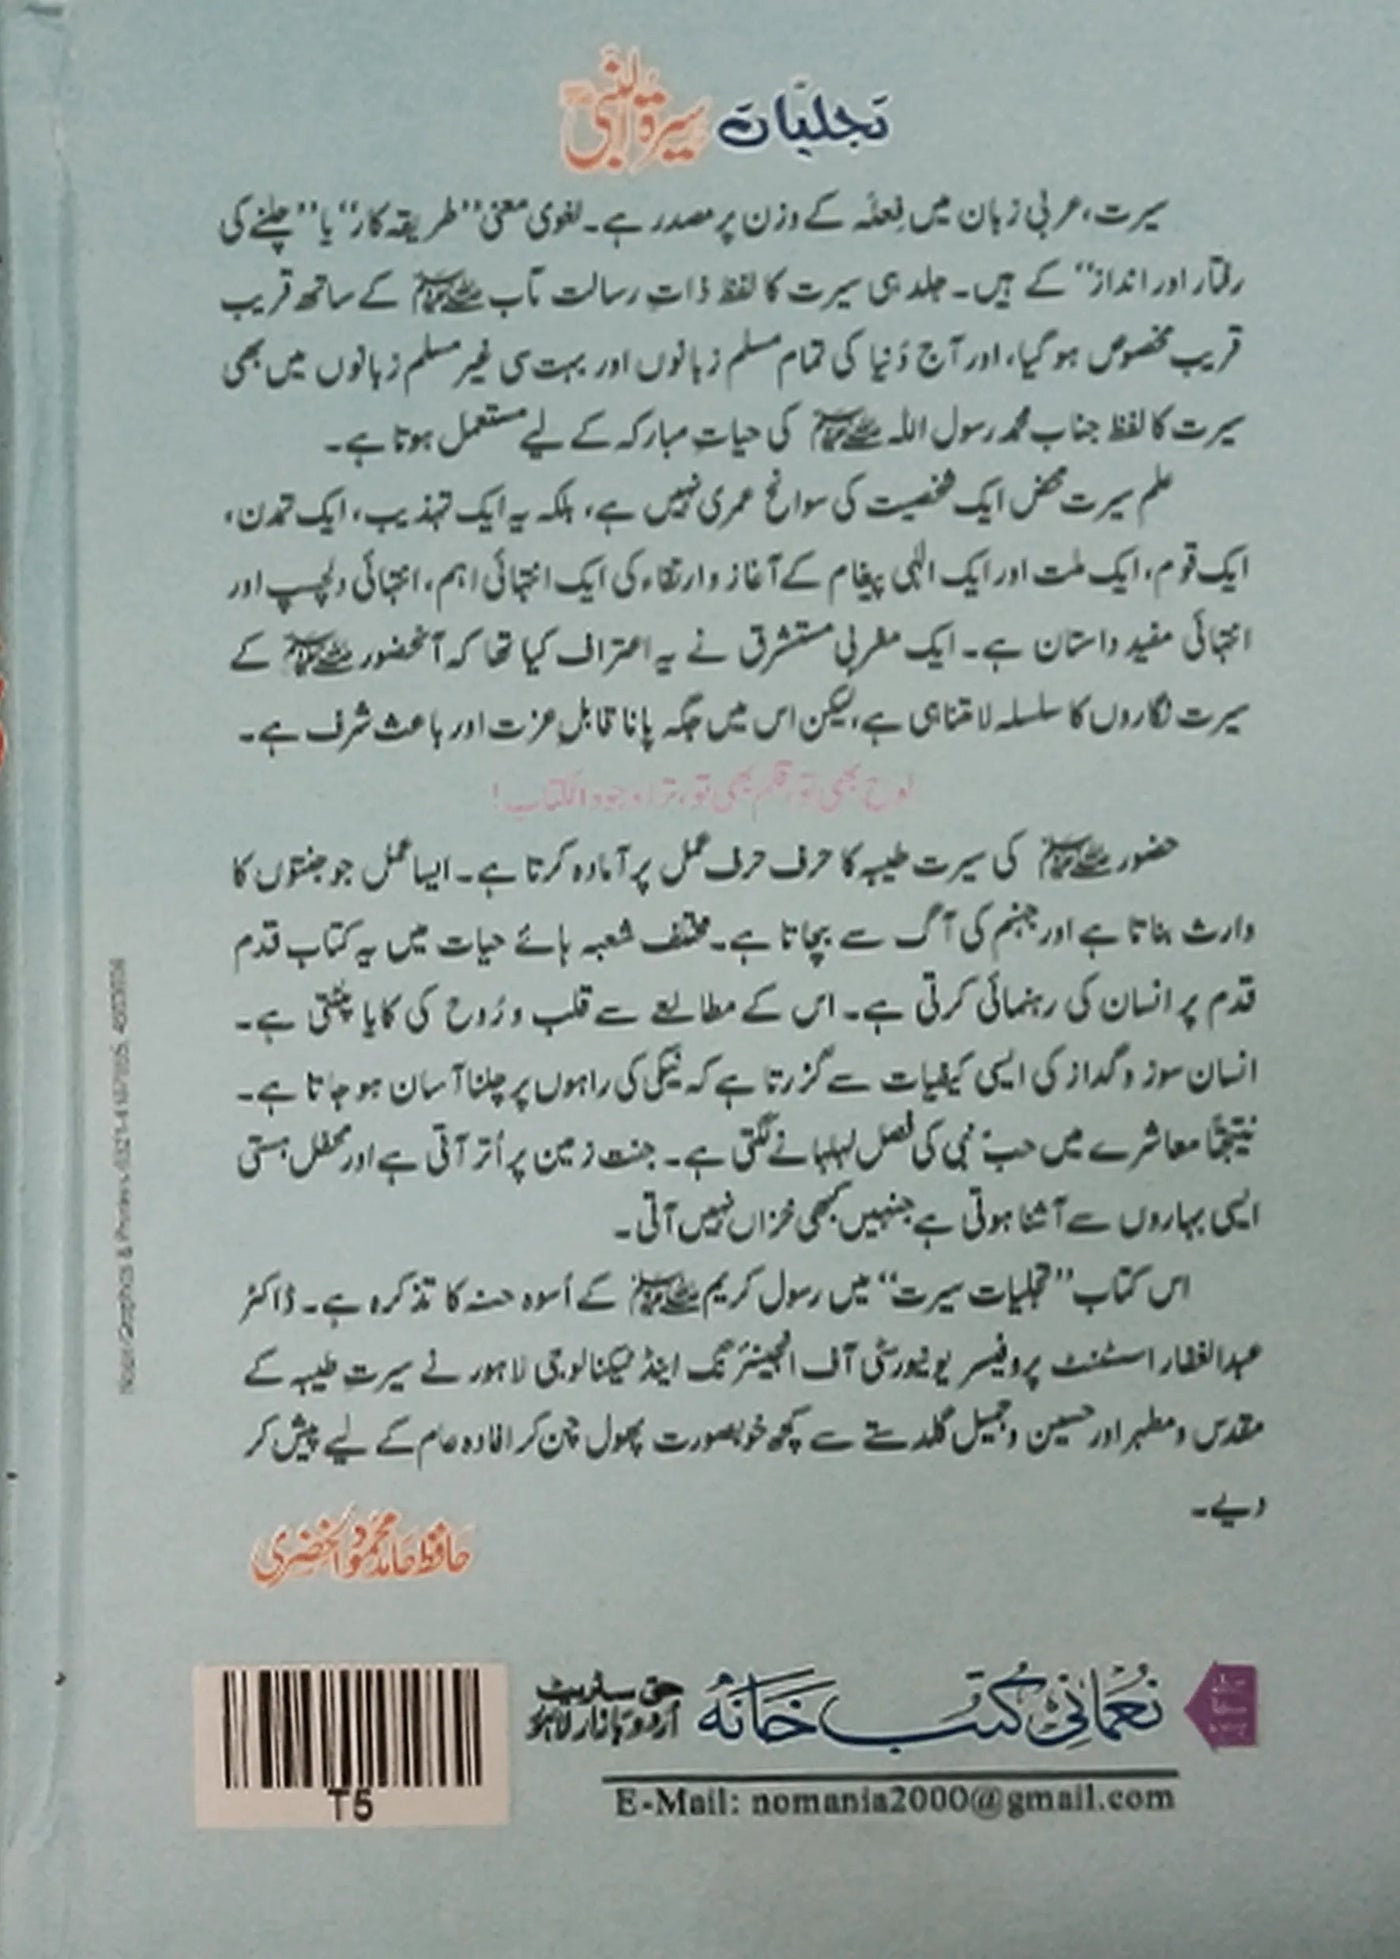 تجلیات سیرۃ النبی ﷺ
سیرت، عربی زبان میں فِعلَہ کے وزن پر مصدر ہے۔ لغوی معنی ”طریقہ کار“ یا ”چلنے کی
رفتار اور انداز“ کے ہیں۔ جلد ہی سیرت کا لفظ ذاتِ رسالت مآب ﷺ کے ساتھ قریب
قریب مخصوص ہو گیا، اور آج دُنیا کی تمام مسلم زبانوں اور بہت سی غیر مسلم زبانوں میں بھی
سیرت کا لفظ جناب محمد رسول اللہ ﷺ کی حیاتِ مبارکہ کے لیے مستعمل ہوتا ہے۔
علم سیرت محض ایک شخصیت کی سوانح عمری نہیں ہے، بلکہ یہ ایک تہذیب، ایک تمدن،
ایک قوم، ایک ملت اور ایک الٰہی پیغام کے آغاز و ارتقاء کی ایک انتہائی اہم، انتہائی دلچسپ اور
انتہائی مفید داستان ہے۔ ایک مغربی مستشرق نے یہ اعتراف کیا تھا کہ آنحضور ﷺ کے
سیرت نگاروں کا سلسلہ لامتناہی ہے، لیکن اس میں جگہ پانا قابلِ عزت اور باعث شرف ہے۔
لوح بھی تو، قلم بھی تو، ترا وجود الکتاب!
حضور ﷺ کی سیرت طیبہ کا حرف حرف عمل پر آمادہ کرتا ہے۔ ایسا عمل جو جنتوں کا
وارث بناتا ہے اور جہنم کی آگ سے بچاتا ہے۔ مختلف شعبہ ہائے حیات میں یہ کتاب قدم
قدم پر انسان کی رہنمائی کرتی ہے۔ اس کے مطالعے سے قلب و رُوح کی کایا پلٹتی ہے۔
انسان سوز و گداز کی ایسی کیفیات سے گزرتا ہے کہ نیکی کی راہوں پر چلنا آسان ہو جاتا ہے۔
نتیجتاً معاشرے میں حبّ نبی کی فصل لہلہانے لگتی ہے۔ جنت زمین پر اُتر آتی ہے اور محفل ہستی
ایسی بہاروں سے آشنا ہوتی ہے جنہیں کبھی خزاں نہیں آتی۔
اس کتاب ”تجلیات سیرت“ میں رسول کریم ﷺ کے اُسوہ حسنہ کا تذکرہ ہے۔ ڈاکٹر
عبدالغفار اسسٹنٹ پروفیسر یونیورسٹی آف انجینئرنگ اینڈ ٹیکنالوجی لاہور نے سیرتِ طیبہ کے
مقدس و مطہر اور حسین و جمیل گلدستے سے کچھ خوبصورت پھول چن کر افادہ عام کے لیے پیش کر
دیے۔
حافظ حامد محمود الخضری
نعمانی کتب خانہ
حق سٹریٹ
اردو بازار لاہور
E-Mail: nomania2000@gmail.com
T5
Graphics & Printers 0321-4